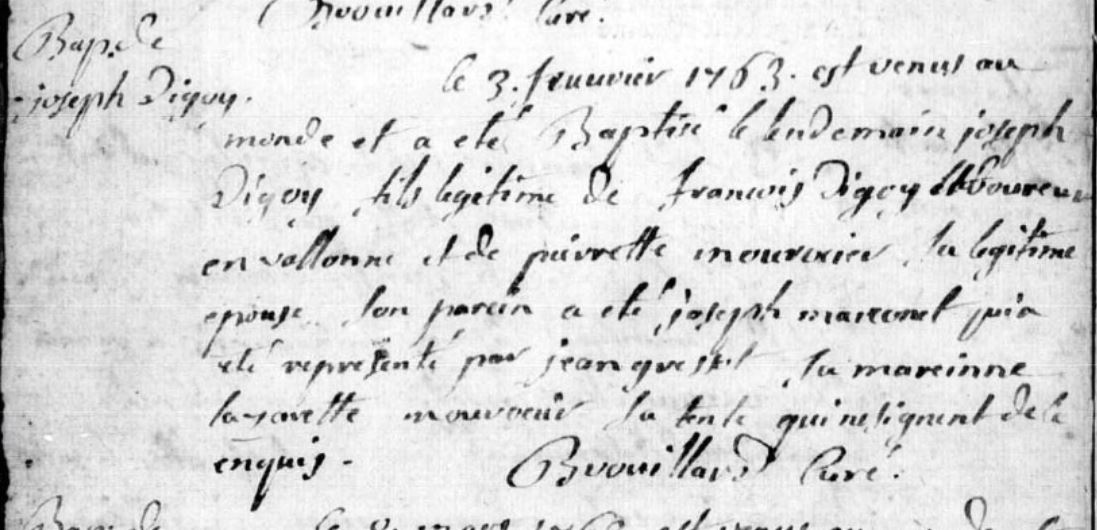 Brouillard Curé.
Bap. de
joseph Digoy.
le 3. janvier 1763. est venus au
monde et a eté Baptisé le lendemain joseph
Digoy fils legitime de francois Digoy
en vallonne et de pierrette mouvoeir sa legitime
epouse. son parein a eté joseph marconet qui a
eté representé par jean sa mareinne
mouvoeir sa tente qui ne signent de ce
enquis.
Brouillard Curé.
Bap. de